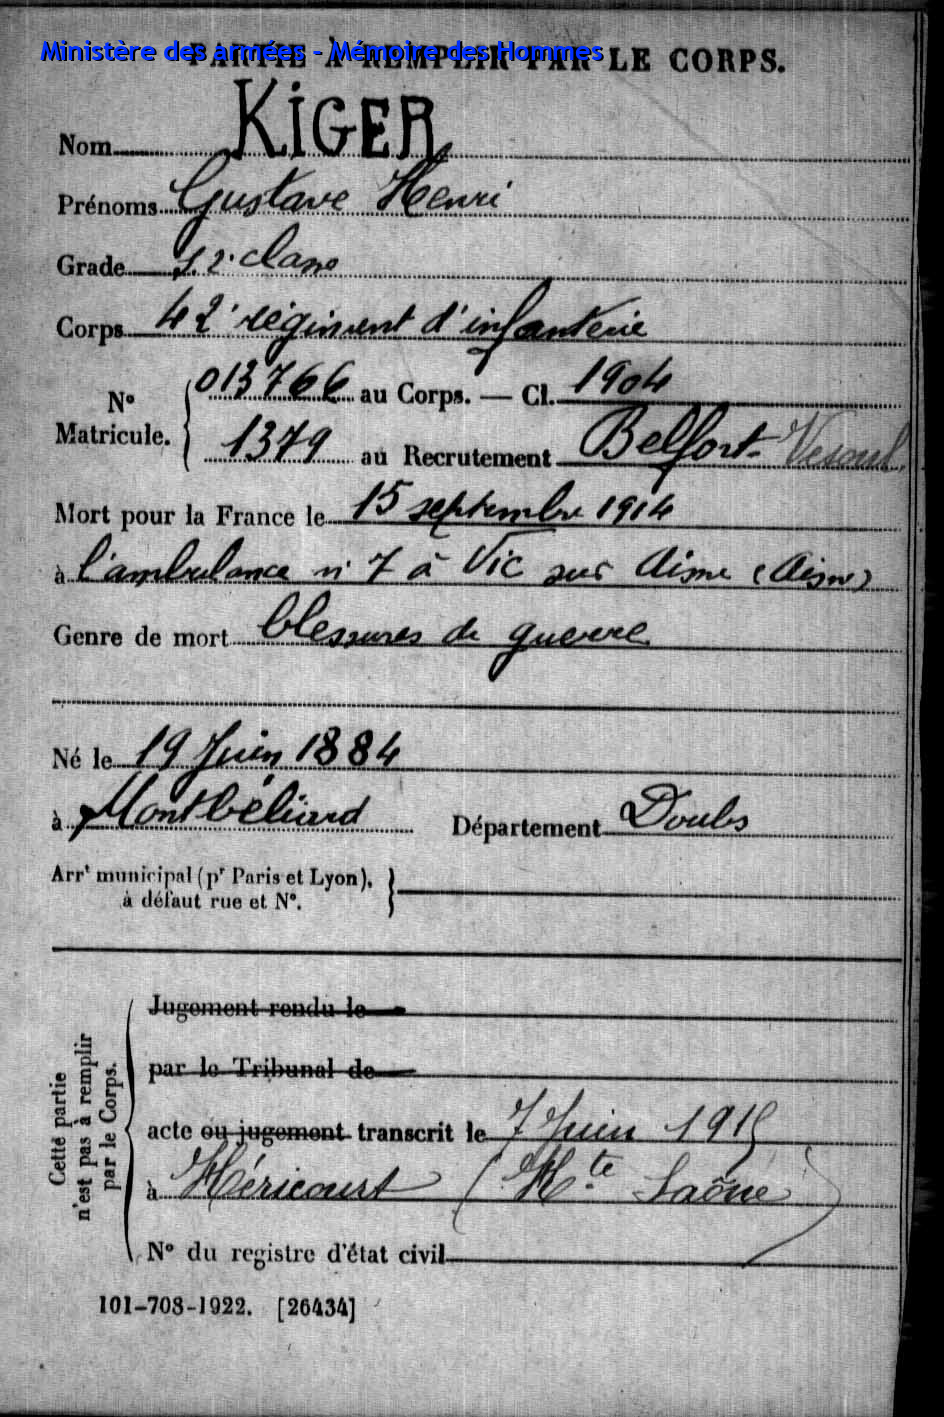 Ministère des armées - Mémoire des Hommes
PARTIE À REMPLIR PAR LE CORPS.
Nom KIGER
Prénoms Gustave Henri
Grade s. 2e classe
Corps 42e régiment d'infanterie
N° Matricule. 013766 au Corps. — Cl. 1904
1379 au Recrutement Belfort - Vesoul
Mort pour la France le 15 septembre 1914
à l'ambulance n° 7 à Vic sur Aisne (Aisne)
Genre de mort blessures de guerre
Né le 19 Juin 1884
à Montbéliard Département Doubs
Arrt municipal (pr Paris et Lyon),
à défaut rue et N°.
Cette partie n'est pas à remplir par le Corps.
Jugement rendu le
par le Tribunal de
acte ou jugement transcrit le 7 Juin 1915
à Héricourt (Hte Saône)
N° du registre d'état civil
101-708-1922. [26434]